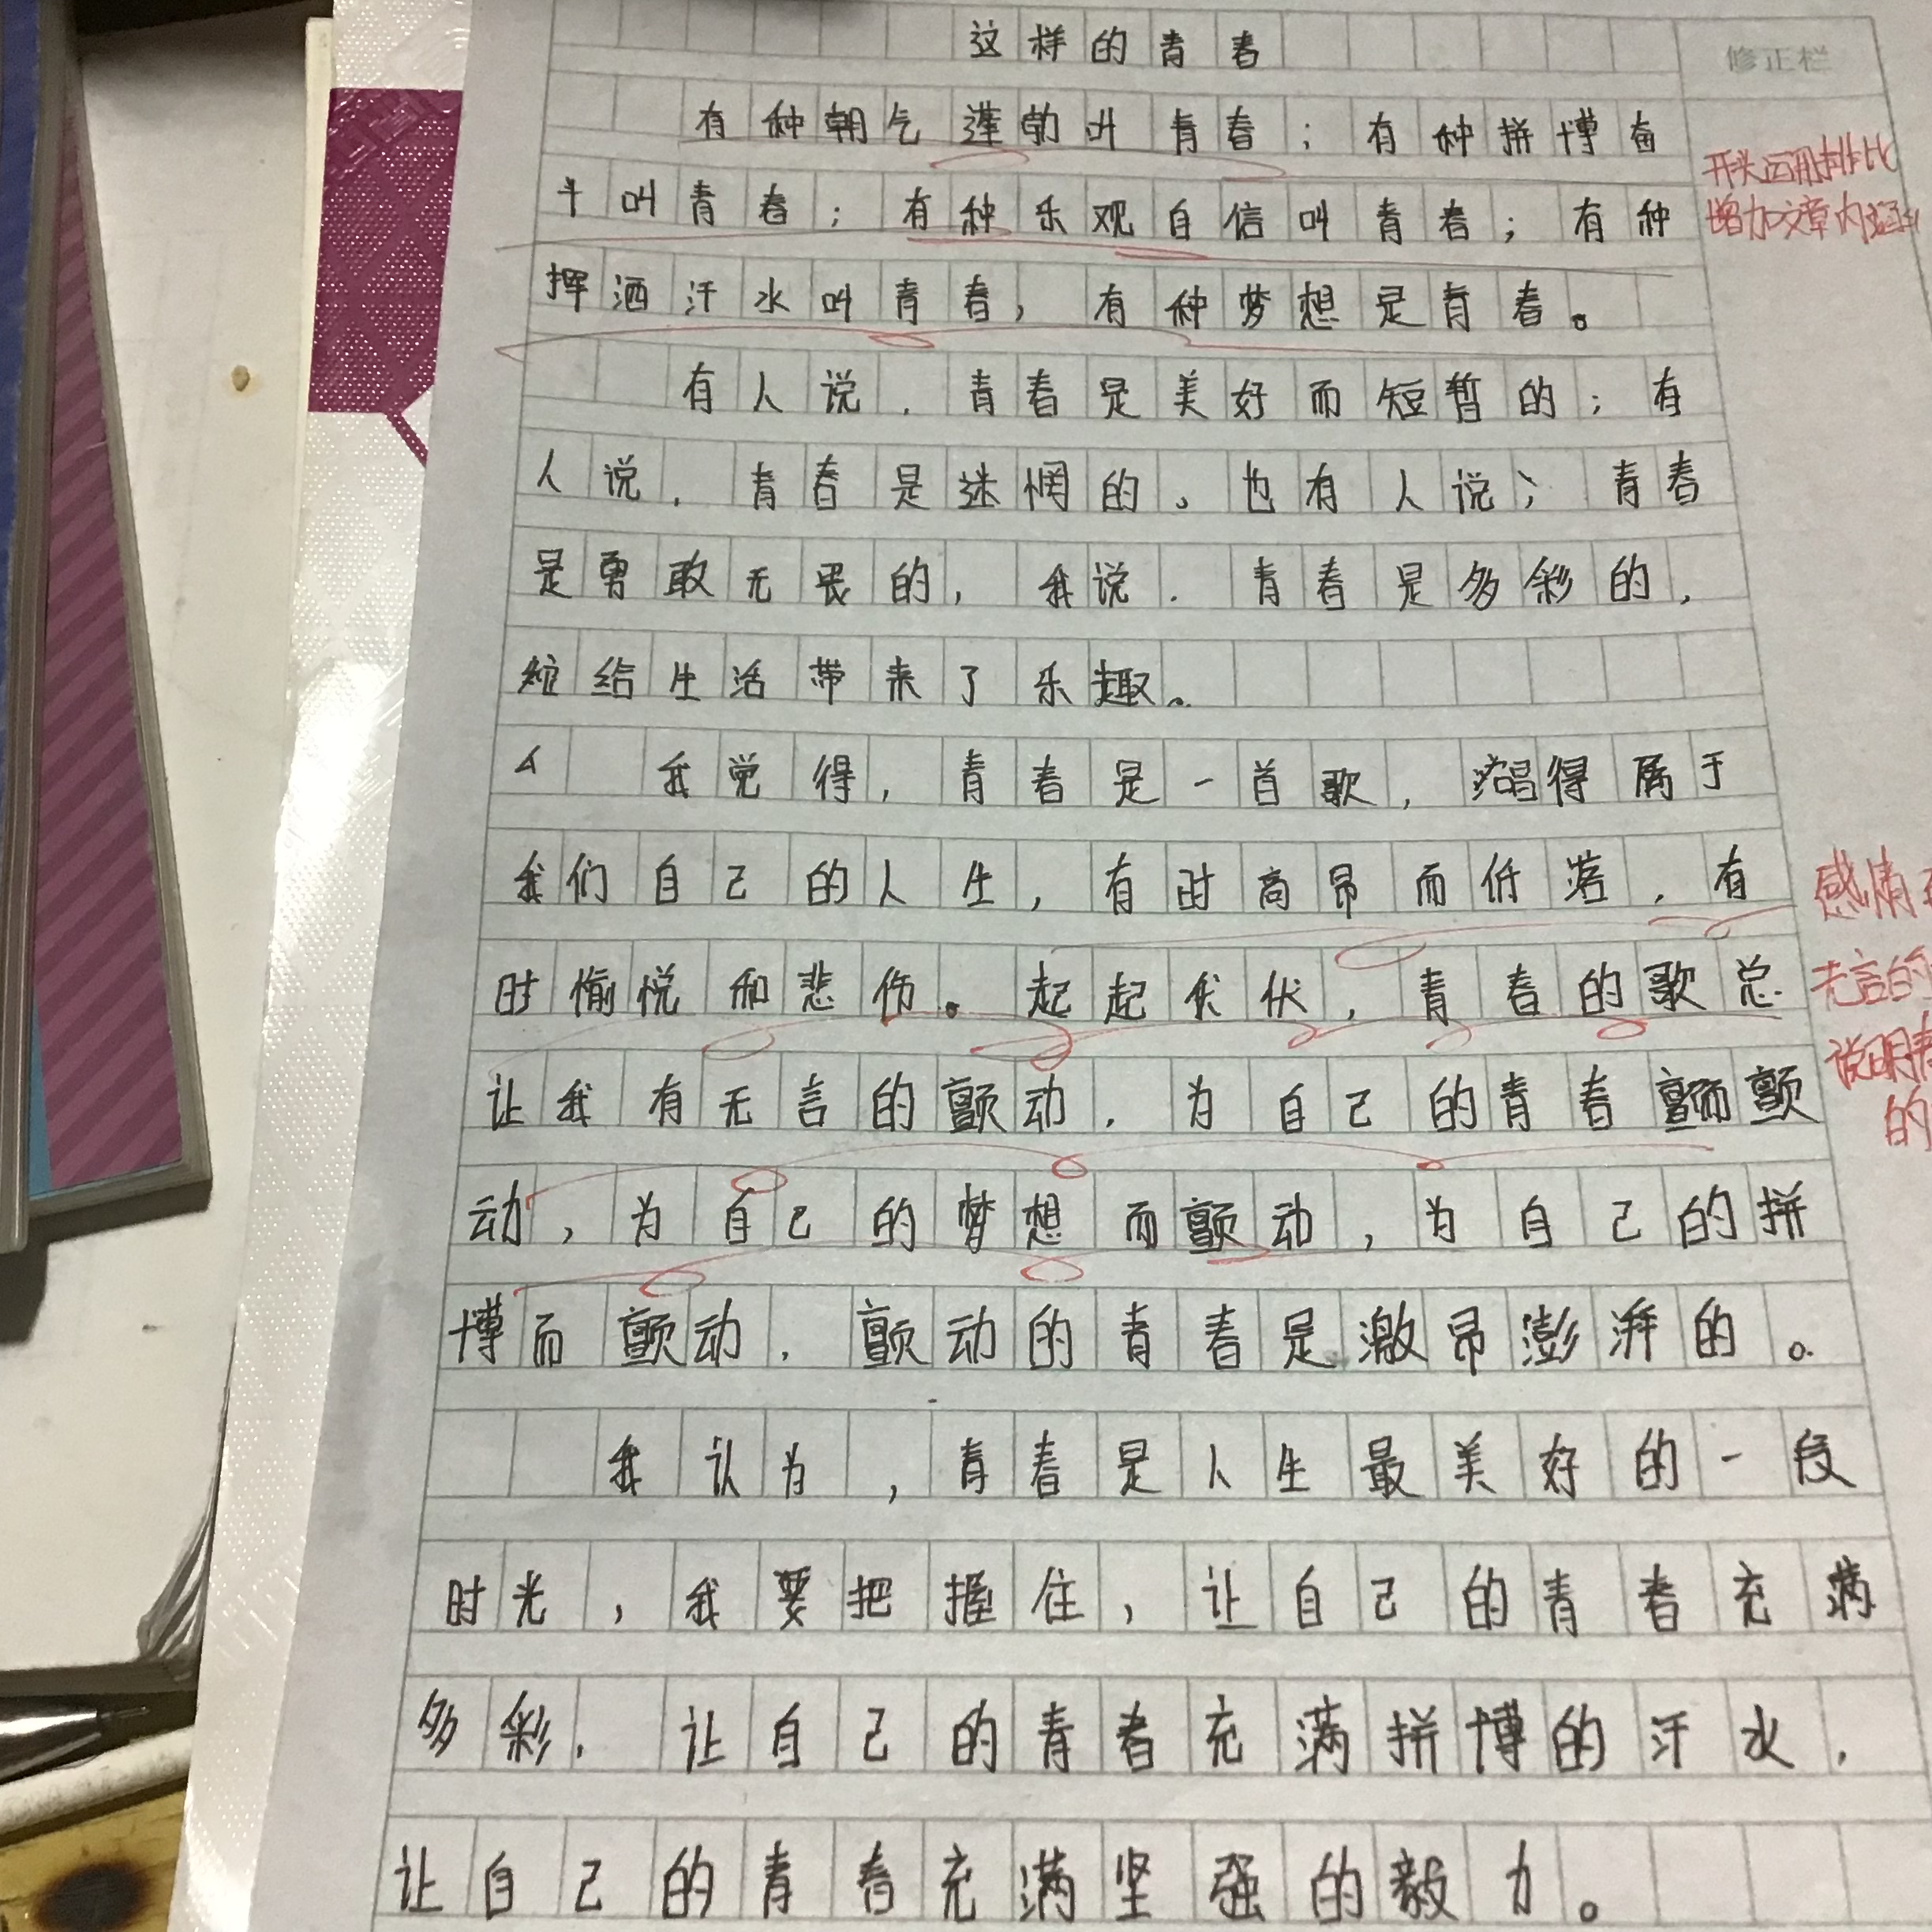 这样的青春
修正栏
有种朝气蓬勃叫青春；有种拼博奋
斗叫青春；有种乐观自信叫青春；有种
挥洒汗水叫青春，有种梦想是青春。
开头运用排比
增加文章内涵
有人说，青春是美好而短暂的；有
人说，青春是迷惘的。也有人说，青春
是勇敢无畏的，我说，青春是多彩的，
给生活带来了乐趣。
我觉得，青春是一首歌，唱得属于
我们自己的人生，有时高昂而低落，有
时愉悦和悲伤。起起伏伏，青春的歌总
让我有无言的颤动，为自己的青春而颤
动，为自己的梦想而颤动，为自己的拼
博而颤动，颤动的青春是激昂澎湃的。
感情
无言的
说明青
的
我认为，青春是人生最美好的一段
时光，我要把握住，让自己的青春充满
多彩，让自己的青春充满拼博的汗水，
让自己的青春充满坚强的毅力。